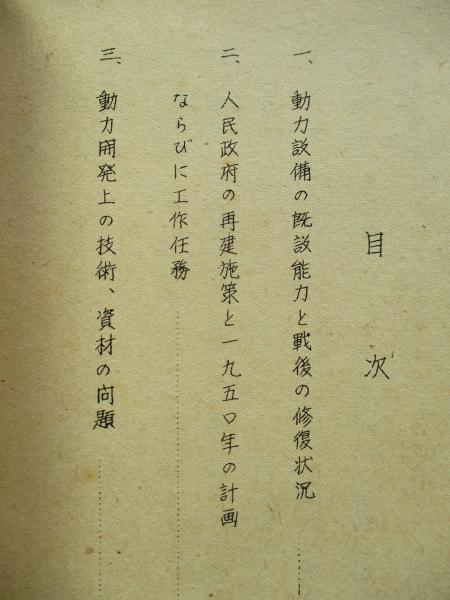 目次
一、動力設備の既設能力と戰後の修復状況……
二、人民政府の再建施策と一九五〇年の計画
ならびに工作任務……
三、動力開発上の技術、資材の问題……